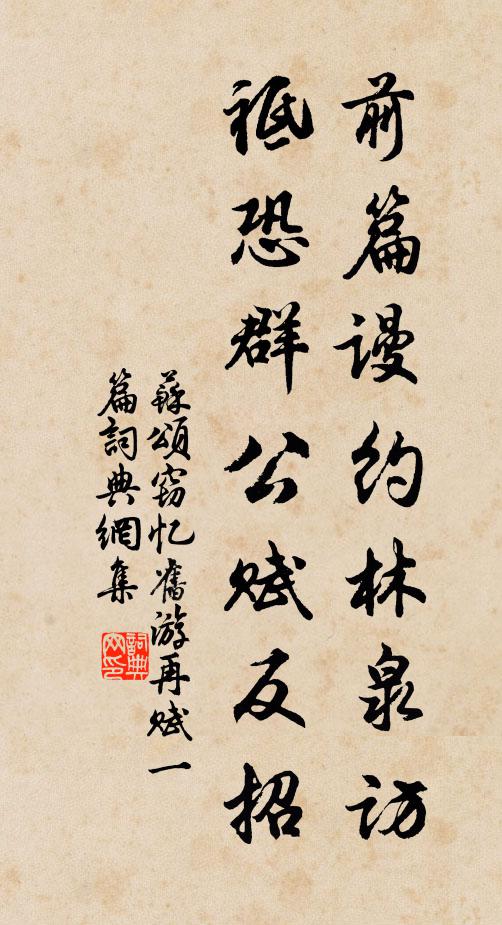 前篇谩约林泉访
祗恐群公赋反招
蘇頌窃忆舊游再赋一
篇詞典網集
詞典网印